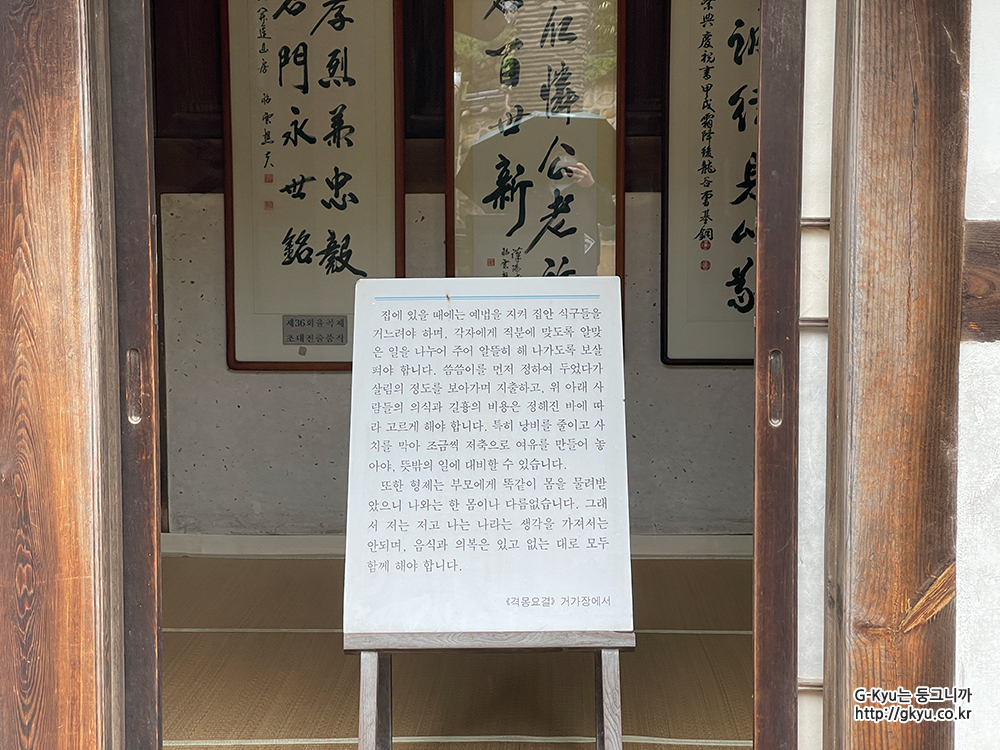 孝烈兼忠毅
門永世銘
百世新
憐公老
興慶祝書甲戌霜降後龍谷曺基銅
제36회율곡제
초대전출품작
집에 있을 때에는 예법을 지켜 집안 식구들을
거느려야 하며, 각자에게 직분에 맞도록 알맞
은 일을 나누어 주어 알뜰히 해 나가도록 보살
펴야 합니다. 씀씀이를 먼저 정하여 두었다가
살림의 정도를 보아가며 지출하고, 위 아래 사
람들의 의식과 길흉의 비용은 정해진 바에 따
라 고르게 해야 합니다. 특히 낭비를 줄이고 사
치를 막아 조금씩 저축으로 여유를 만들어 놓
아야, 뜻밖의 일에 대비할 수 있습니다.
또한 형제는 부모에게 똑같이 몸을 물려받
았으니 나와는 한 몸이나 다름없습니다. 그래
서 저는 저고 나는 나라는 생각을 가져서는
안되며, 음식과 의복은 있고 없는 대로 모두
함께 해야 합니다.
《격몽요결》 거가장에서
G-Kyu는 둥그니까
http://gkyu.co.kr